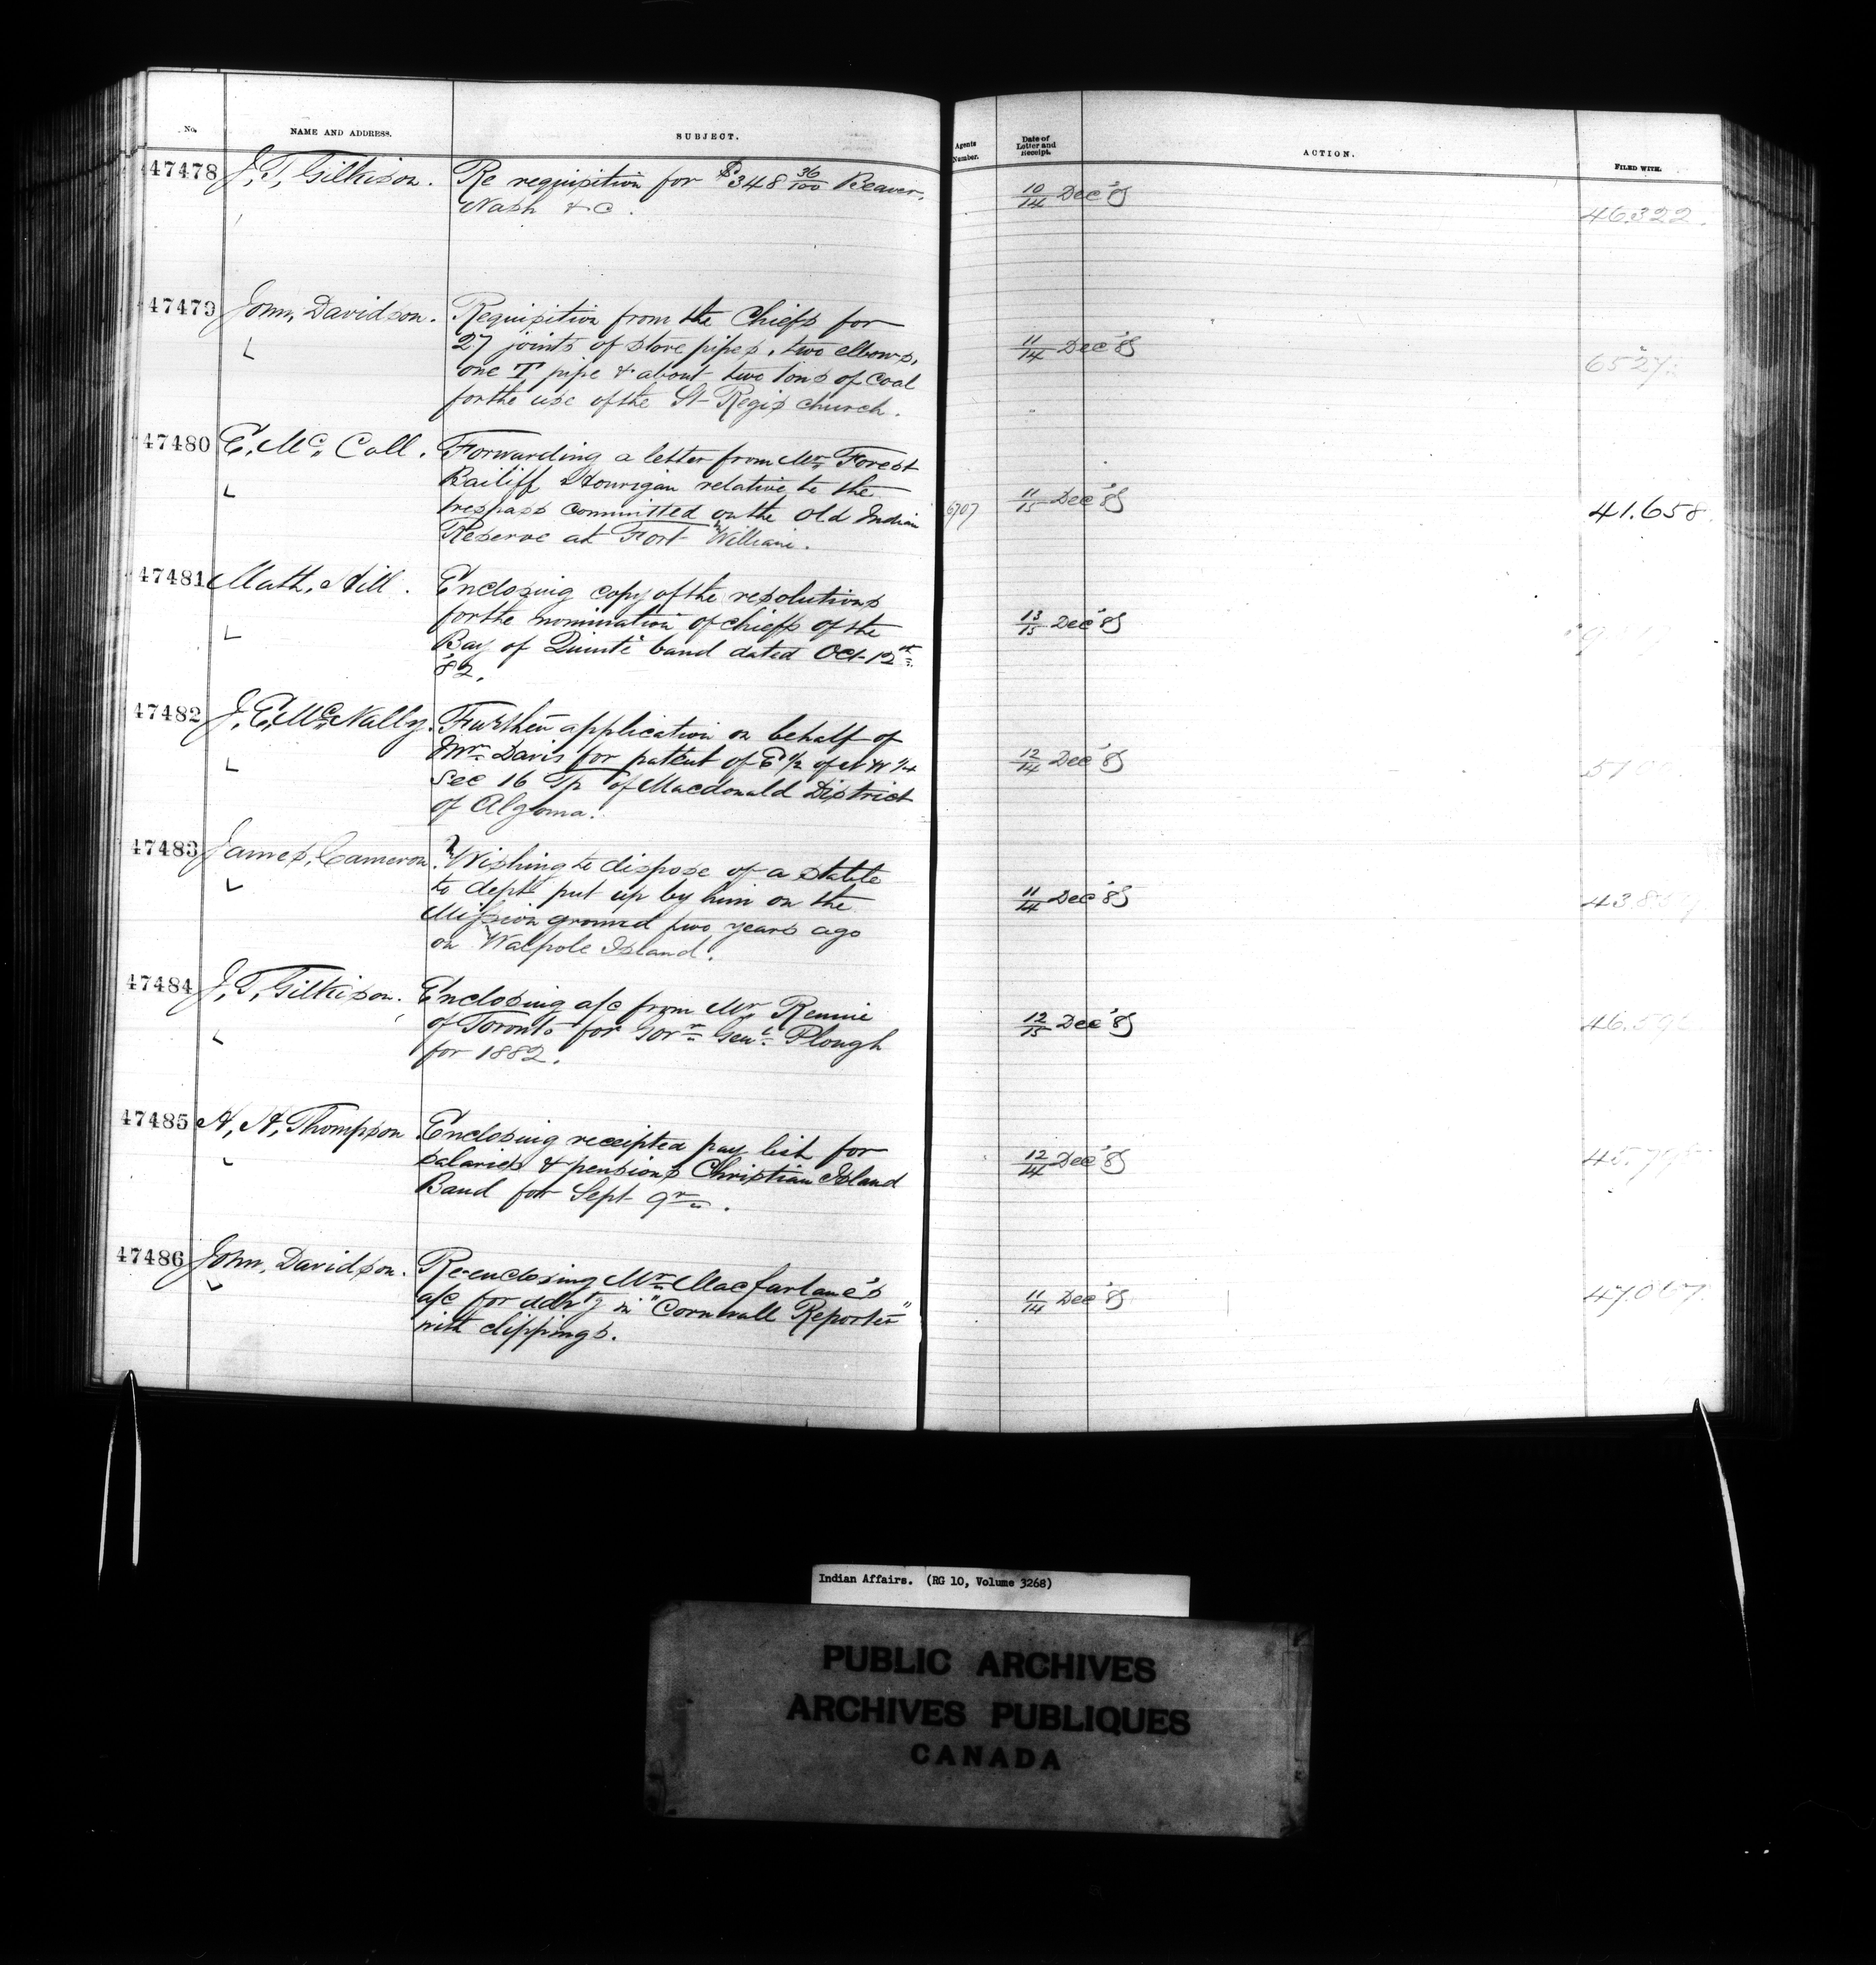 No. NAME AND ADDRESS. SUBJECT. Agents Number. Date of Letter and Receipt. ACTION. FILED WITH.
47478 J. T. Gilkison. Re requisition for $348 36/100 Beaver, 10/14 Dec '85
Nash & c. 46.322.
47479 John, Davidson. Requisition from the Chiefs for
27 joints of stove pipes, two elbows, 11/14 Dec '85
one T pipe & about two tons of Coal 6527.
for the use of the St Regis church.
47480 E. Mc Coll. Forwarding a letter from Mr Forest
Bailiff Hourigan relative to the 11/15 Dec '85
trespass committed on the Old Indian 6707 41.658.
Reserve at Fort William.
47481 Math, Hill. Enclosing copy of the resolutions
for the nomination of chiefs of the 13/15 Dec '85
Bay of Quinté band dated Oct 12th
'82.
47482 J. E. Mc Nally. Further application on behalf of
Mr Davis for patent of E 1/2 of N W 1/4 12/14 Dec '85
Sec 16 Tp of Macdonald District
of Algoma.
47483 James, Cameron. Wishing to dispose of a stable
to dept put up by him on the 11/14 Dec '85
Mission ground two years ago
on Walpole Island.
47484 J. T. Gilkison. Enclosing a/c from Mr Rennie
of Toronto for Gov r Gen l Plough 12/15 Dec '85
for 1882.
47485 H. H. Thompson Enclosing receipted pay list for
salaries & pensions Christian Island 12/14 Dec '85
Band for Sept qr.
47486 John, Davidson. Re-enclosing Mr Macfarlane's
a/c for advtg in "Cornwall Reporter" 11/14 Dec '85 47.067.
with clippings.
Indian Affairs. (RG 10, Volume 3268)
PUBLIC ARCHIVES
ARCHIVES PUBLIQUES
CANADA